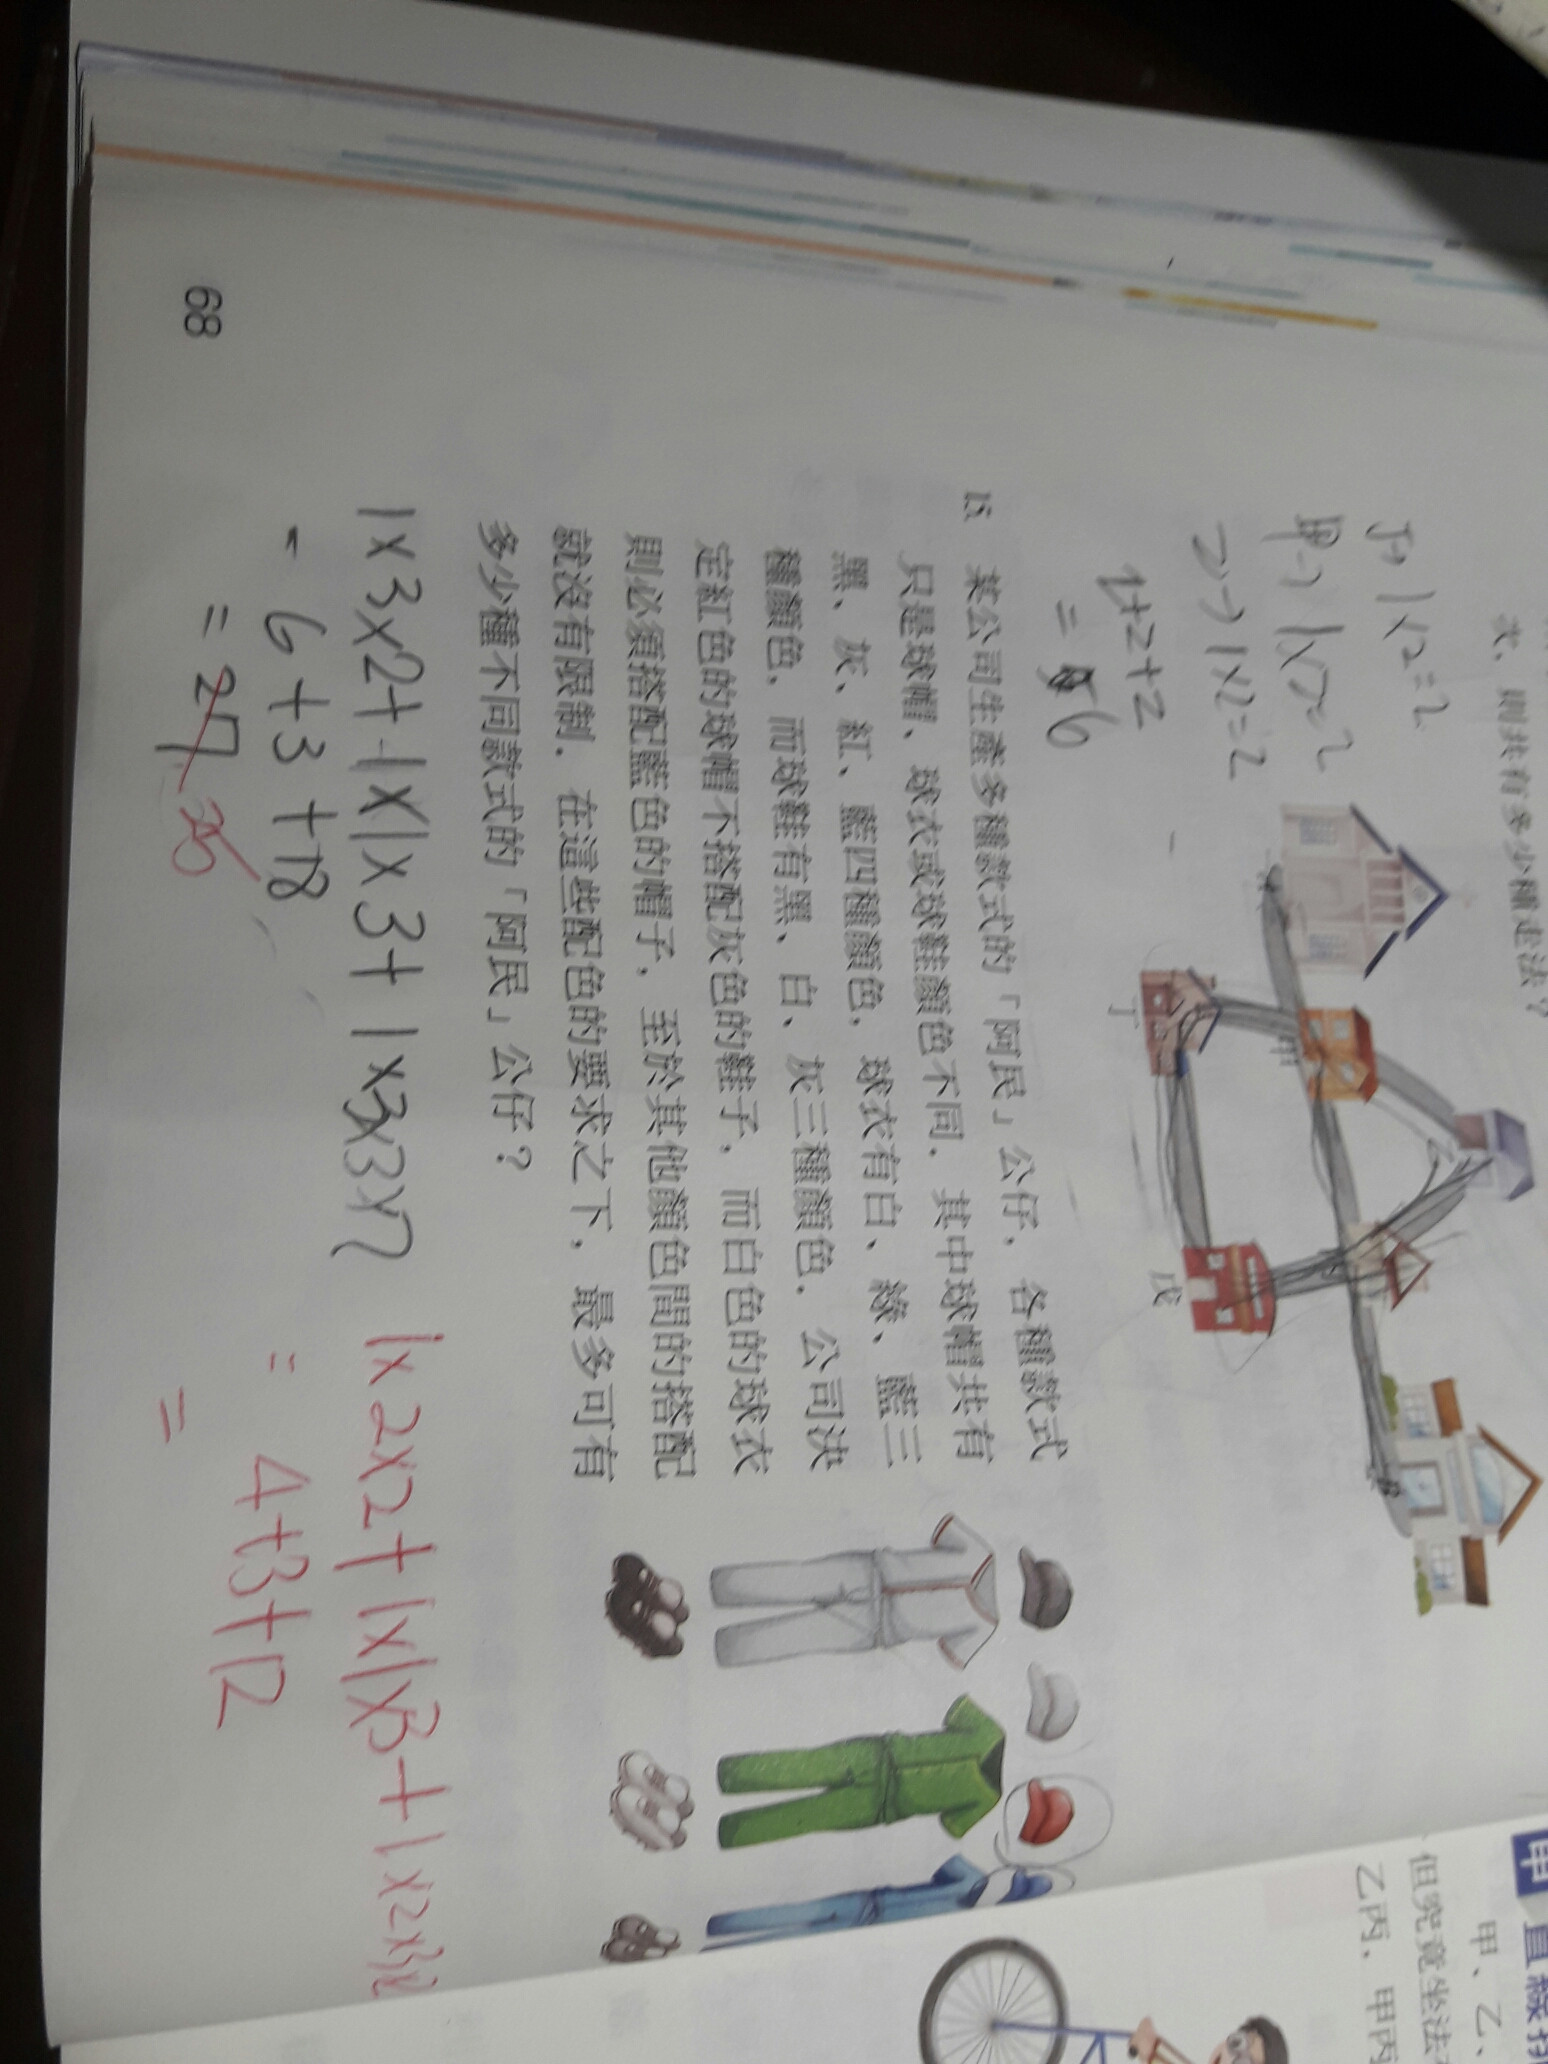 求，則共有多少種走法？
丁→1×2=2
甲→1×2=2
→1×2=2
2+2+2
=6
甲
丁
戊
15. 某公司生產多種款式的「阿民」公仔，各種款式
只是球帽、球衣或球鞋顏色不同．其中球帽共有
黑、灰、紅、藍四種顏色，球衣有白、綠、藍三
種顏色，而球鞋有黑、白、灰三種顏色．公司決
定紅色的球帽不搭配灰色的鞋子，而白色的球衣
則必須搭配藍色的帽子，至於其他顏色間的搭配
就沒有限制．在這些配色的要求之下，最多可有
多少種不同款式的「阿民」公仔？
1×3×2+1×1×3+1×3×3×2
= 6+3+18
= 27 25
1×2×2+1×1×3+1×2×3×2
= 4+3+12
=
68
甲 直線排
甲、乙、
但究竟坐法
乙丙、甲丙